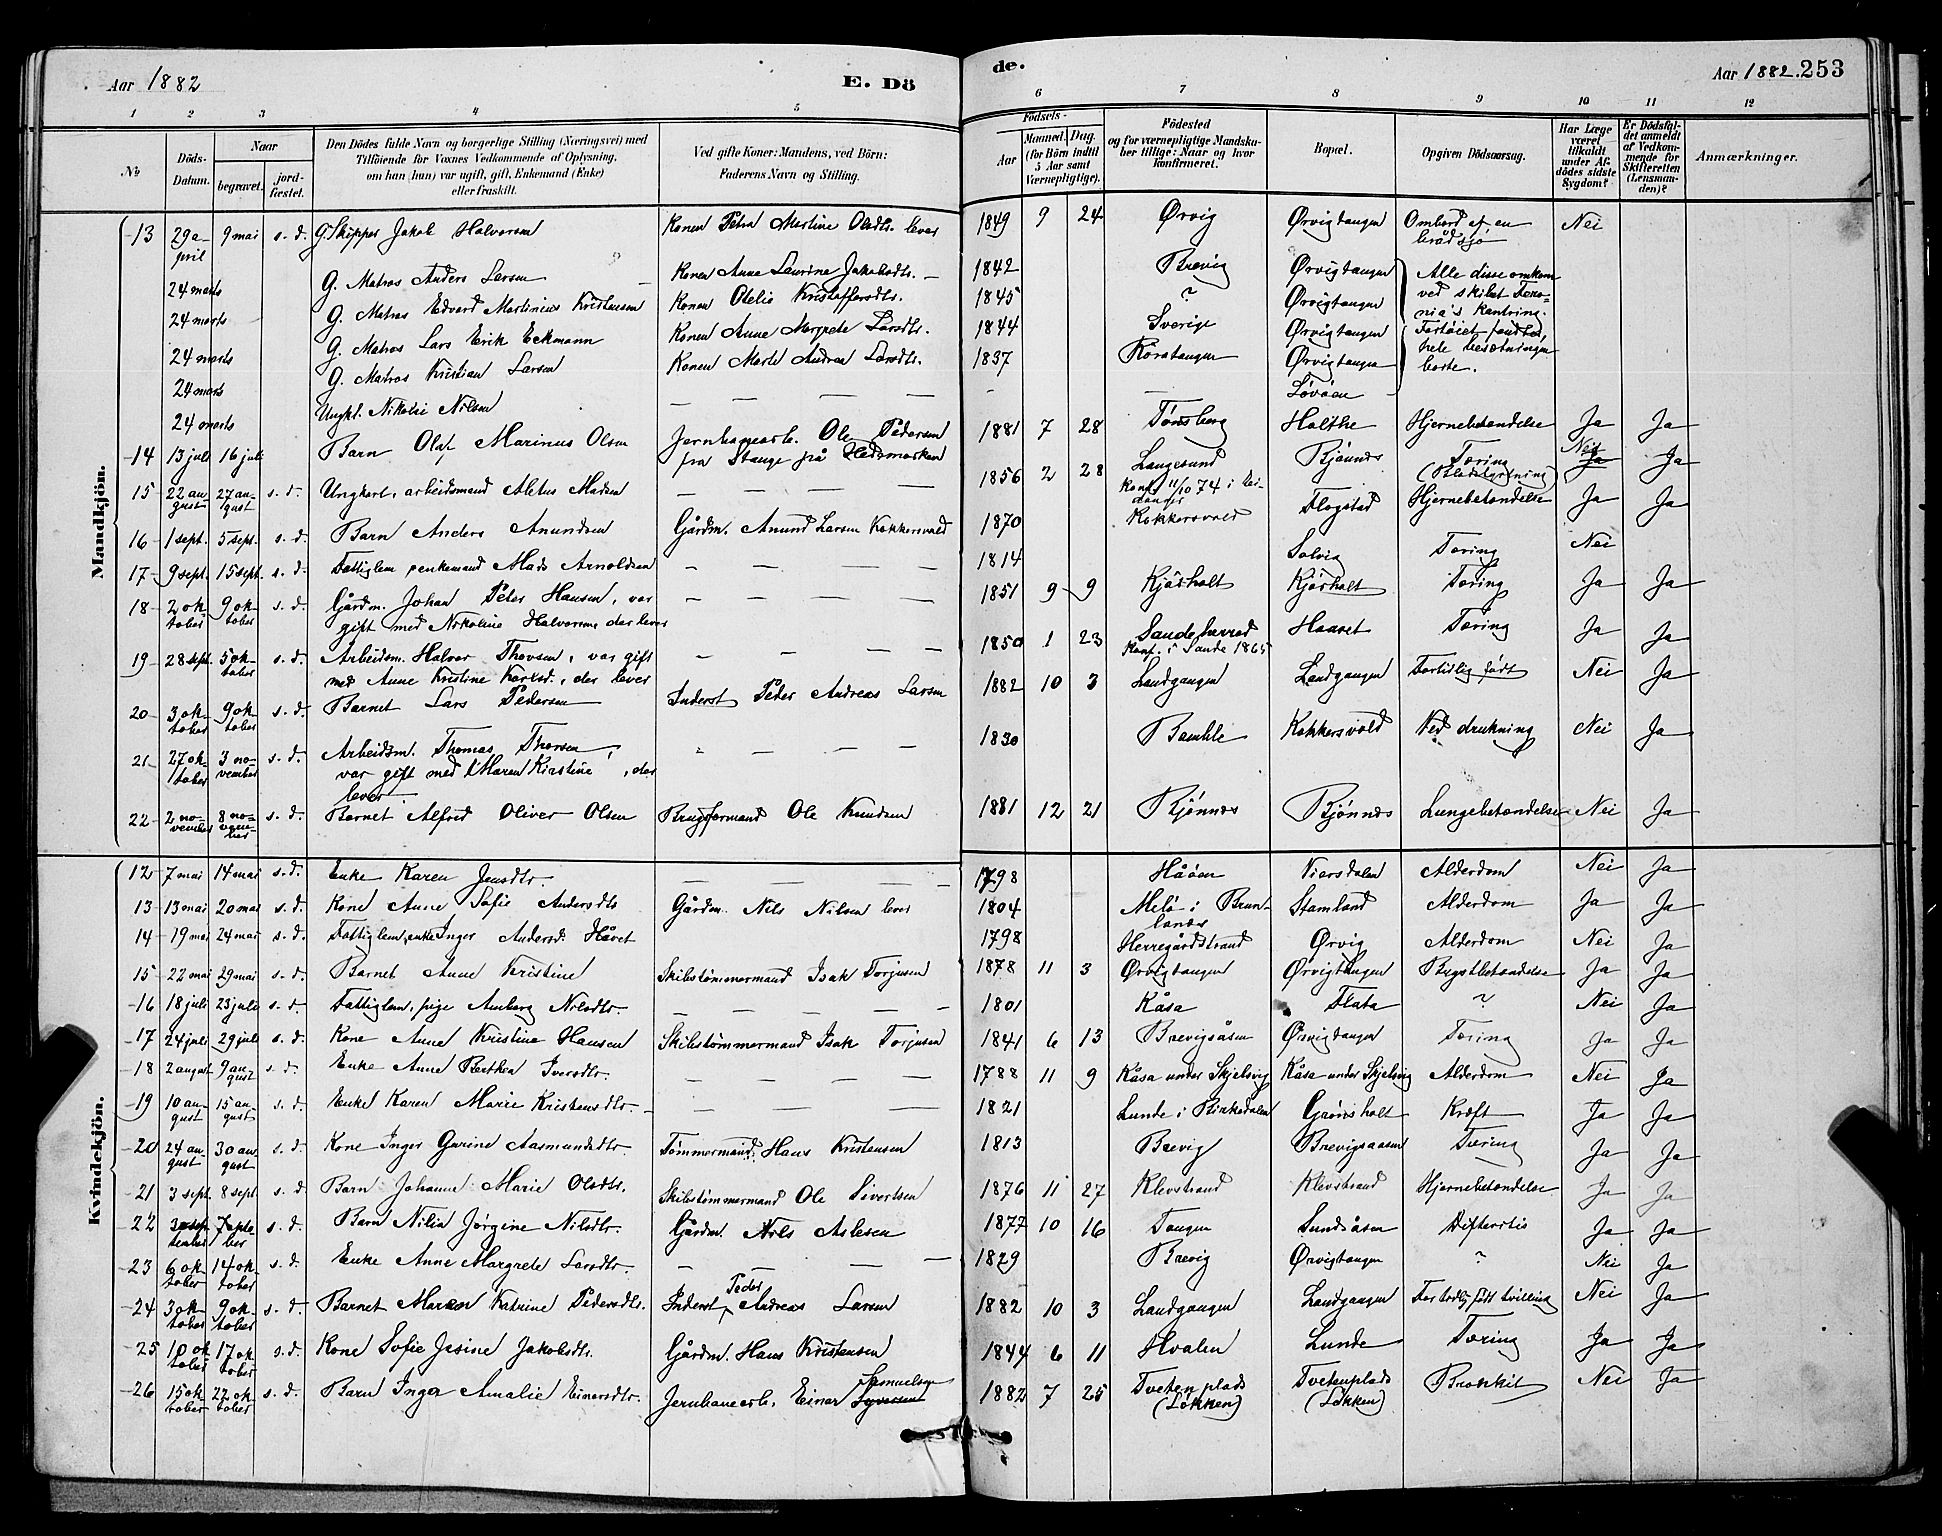 Aar 1882 E. Dö de. Aar 1882. 253
1 2 3 4 5 6 7 8 9 10 11 12
№ Döds-Datum. Naar begravet. jordfæstet. Den Dödes fulde Navn og borgerlige Stilling (Næringsvei) med Tilföiende for Voxnes Vedkommende af Oplysning, om han (hun) var ugift, gift, Enkemand (Enke) eller fraskilt. Ved gifte Koner: Mandens, ved Börn: Faderens Navn og Stilling. Födsels- Aar Maaned. Dag. (for Börn indtil 5 Aar samt Værnepligtige). Födested og for værnepligtige Mandskaber tillige: Naar og hvor konfirmeret. Bopæl. Opgiven Dödsaarsag. Har Læge været tilkaldt under Afdödes sidste Sygdom? Er Dödsfaldet anmeldt af Vedkommende for Skifteretten (Lensmanden)? Anmærkninger.
Mandkjön.
13 29 april 9 mai s. d. G. Skipper Jakob Halvorsen Konen Petra Martine Olsdtr. lever 1849 9 24 Ørvig Ørvigtangen Ombord af en brådsjø Nei
24 marts G. Matros Anders Larsen Konen Anne Laurine Jakobsdtr. — 1842 Brevig Ørvigtangen Alle disse omkom
24 marts G. Matros Edvard Martinius Kristensen Konen Otelie Kristoffersdtr. 1845 ? Ørvigtangen ved skibet Feronia's kantring.
24 marts G. Matros Lars Erik Eckmann Konen Anne Margrete Larsdtr. 1844 Sverige Ørvigtangen Fartøiet fandtes,
24 marts G. Matros Kristian Larsen Konen Marte Andrea Larsdtr. 1837 Korstangen Ørvigtangen hele besætningen borte.
24 marts Ungkl. Nikolai Nilsen — — — — — — Løvøen
14 13 juli 16 juli Barn Olaf Marinus Olsen Jernbanearb. Ole Pedersen fra Stange på Hedemarken 1881 7 28 Tønsberg Holthe Hjernebetændelse Ja Ja
15 22 august 27 august s. d. Ungkarl, arbeidsmand Aletus Madsen — — — — 1856 2 28 Langesund Konf. 11/10 74 i Bjønnes Tæring Nei Ja Ja
16 1 sept. 5 sept. s. d. Barn Anders Anundsen Gårdm. Anund Larsen Kokkersvold 1870 Kokkersvold Flogstad Hjernebetændelse Ja Ja
17 9 sept. 15 sept. s. d. Fattiglem, enkemand Mads Arnoldsen — — — — 1814 Solvig Tæring Nei
18 2 oktober 9 oktober s. d. Gårdm. Johan Peter Hansen, var gift med Nikoline Halvorsen, der lever — — — — 1851 9 9 Kjørholt Kjørholt Tæring Ja Ja
19 28 sept. 5 oktober s. d. Arbeidsm. Halvor Thovsen, var gift med Anne Kristine Karlsd., der lever — — — — 1850 1 23 Sande herred Konf. i Sande 1865 Haaset Tæring Ja Ja
20 3 oktober 9 oktober s. d. Barnet Lars Pedersen Inderst Peder Andreas Larsen 1882 10 3 Landgangen Landgangen Fortidlig født Nei Ja
21 27 oktober 3 november s. d. Arbeidsm. Thomas Thorsen, var gift med Maren Kirstine, der lever — — — — 1830 Bamble Kokkersvold Ved drukning Nei Ja
22 2 november 8 november s. d. Barnet Alfred Oliver Olsen Brugsformand Ole Knudsen 1881 12 21 Bjønnes Bjønnes Lungebetændelse Nei Ja
Kvindekjön.
12 7 mai 14 mai s. d. Enke Karen Jensdtr. — — — — 1798 Håøen Viersdalen Alderdom Nei Ja
13 13 mai 20 mai s. d. Kone Anne Sofie Andersdtr Gårdm. Nils Nilsen lever 1804 Melø i Brunlanes Stamland Alderdom Ja Ja
14 19 mai 24 mai s. d. Fattiglem, enke Inger Andersd. Håvet 1798 Herregårdstrand Ørvig Alderdom Nei Ja
15 22 mai 29 mai s. d. Barnet Anne Kristine Skibstømmermand Isak Torjusen 1878 11 3 Ørvigtangen Ørvigtangen Brystbetændelse Ja Ja
16 18 juli 23 juli s. d. Fattiglem, pige Amborg Nilsdtr. — — — — 1801 Kåsa Flata ? Nei Ja
17 24 juli 29 juli s. d. Kone Anne Kristine Hansen Skibstømmermand Isak Torjusen 1841 6 13 Brevigsåsen Ørvigtangen Tæring Ja Ja
18 2 august 9 august s. d. Enke Anne Berthea Iversdtr. — — — — 1788 11 9 Kåsa under Skjelsvig Kåsa under Skjelsvig Alderdom Nei Ja
19 10 august 15 august s. d. Enke Karen Marie Kristensdtr. — — — — 1821 Lunde i Birkedalen Grønsholt Kræft Ja Ja
20 24 august 30 august s. d. Kone Inger Gurine Aasmundsdtr. Tømmermand Hans Kristensen 1813 Brevig Brevigsaasen Tæring Ja Ja
21 3 sept. 8 sept. s. d. Barn Johanne Marie Olsdtr. Skibstømmermand Ole Sivertsen 1876 11 27 Klevstrand Klevstrand Hjernebetændelse Ja Ja
22 september s. d. Barn Nilia Jørgine Nilsdtr. Gårdm. Nils Aslesen 1877 10 16 Tangen Sundsåsen Difteritis Ja Ja
23 6 oktober 14 oktober s. d. Enke Anne Margrete Larsdtr. — — — 1829 Brevig Ørvigtangen ? Nei Ja
24 3 oktober 9 oktober s. d. Barnet Maren Katrine Pedersdtr. Inderst Peder Andreas Larsen 1882 10 3 Landgangen Landgangen For tidlig født tvilling Nei Ja
25 10 oktober 17 oktober s. d. Kone Sofie Jesine Jakobsdtr. Gårdm. Hans Kristensen 1844 6 11 Hvalen Lunde Tæring Ja Ja
26 15 oktober 22 oktober s. d. Barn Inga Amalie Einersdtr. Jernbanearb. Einar Samuelsen 1882 7 25 Tvetenplads (Løkken) Tvetenplads (Løkken) Bronkit Nei Ja